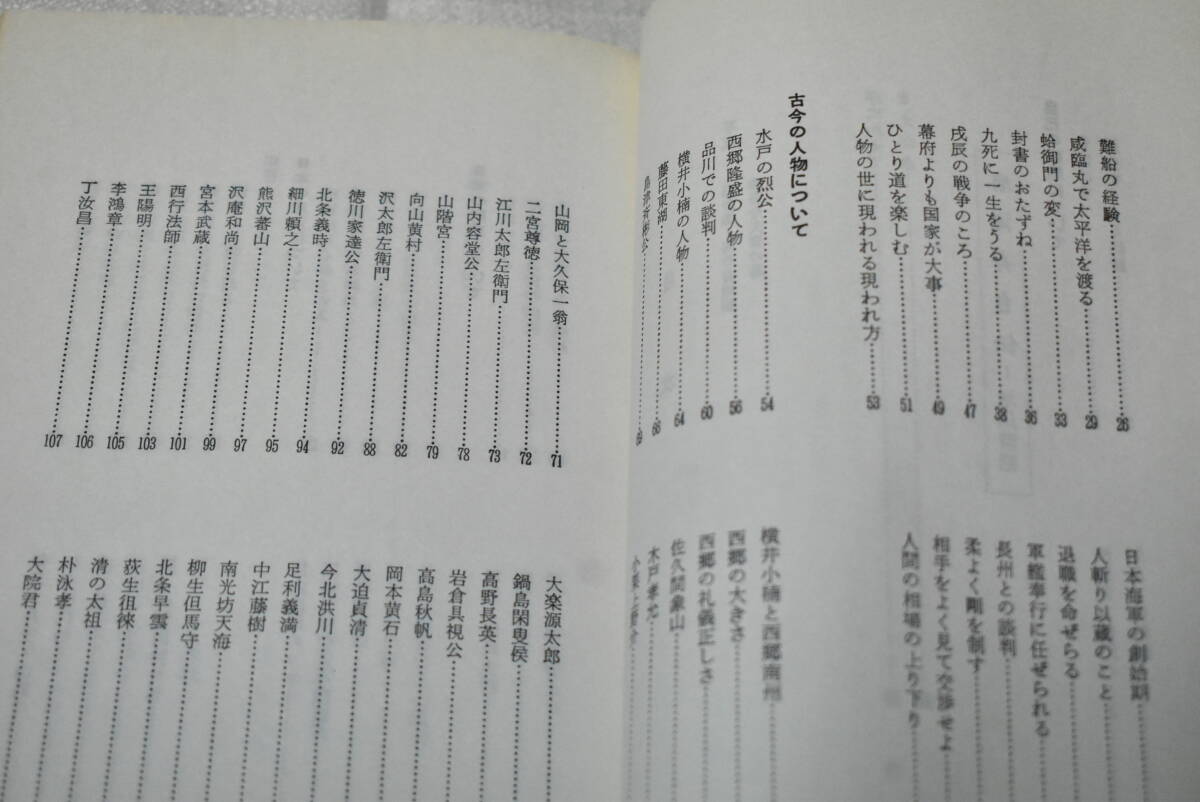 難船の経験……26
咸臨丸で太平洋を渡る……29
蛤御門の変……33
封書のおたずね……36
九死に一生をうる……38
戊辰の戦争のころ……47
幕府よりも国家が大事……49
ひとり道を楽しむ……51
人物の世に現われる現われ方……53
古今の人物について
水戸の烈公……54
西郷隆盛の人物……56
品川での談判……60
横井小楠の人物……64
藤田東湖……66
島津斉彬公……69
日本海軍の創始期……
人斬り以蔵のこと……
退職を命ぜらる……
軍艦奉行に任ぜられる……
長州との談判……
柔よく剛を制す……
相手をよく見て交渉せよ……
人間の相場の上り下り……
横井小楠と西郷南州……
西郷の大きさ……
西郷の礼儀正しさ……
佐久間象山……
木戸孝允……
山岡と大久保一翁……71
二宮尊徳……72
江川太郎左衛門……73
山内容堂公……78
山階宮……79
向山黄村……82
沢太郎左衛門……88
徳川家達公……92
北条義時……94
細川頼之……95
熊沢蕃山……97
沢庵和尚……99
宮本武蔵……101
西行法師……103
王陽明……105
李鴻章……106
丁汝昌……107
大楽源太郎……
鍋島閑叟侯……
高野長英……
岩倉具視公……
高島秋帆……
岡本黄石……
大迫貞清……
今北洪川……
足利義満……
中江藤樹……
南光坊天海……
柳生但馬守……
北条早雲……
荻生徂徠……
清の太祖……
朴泳孝……
大院君……